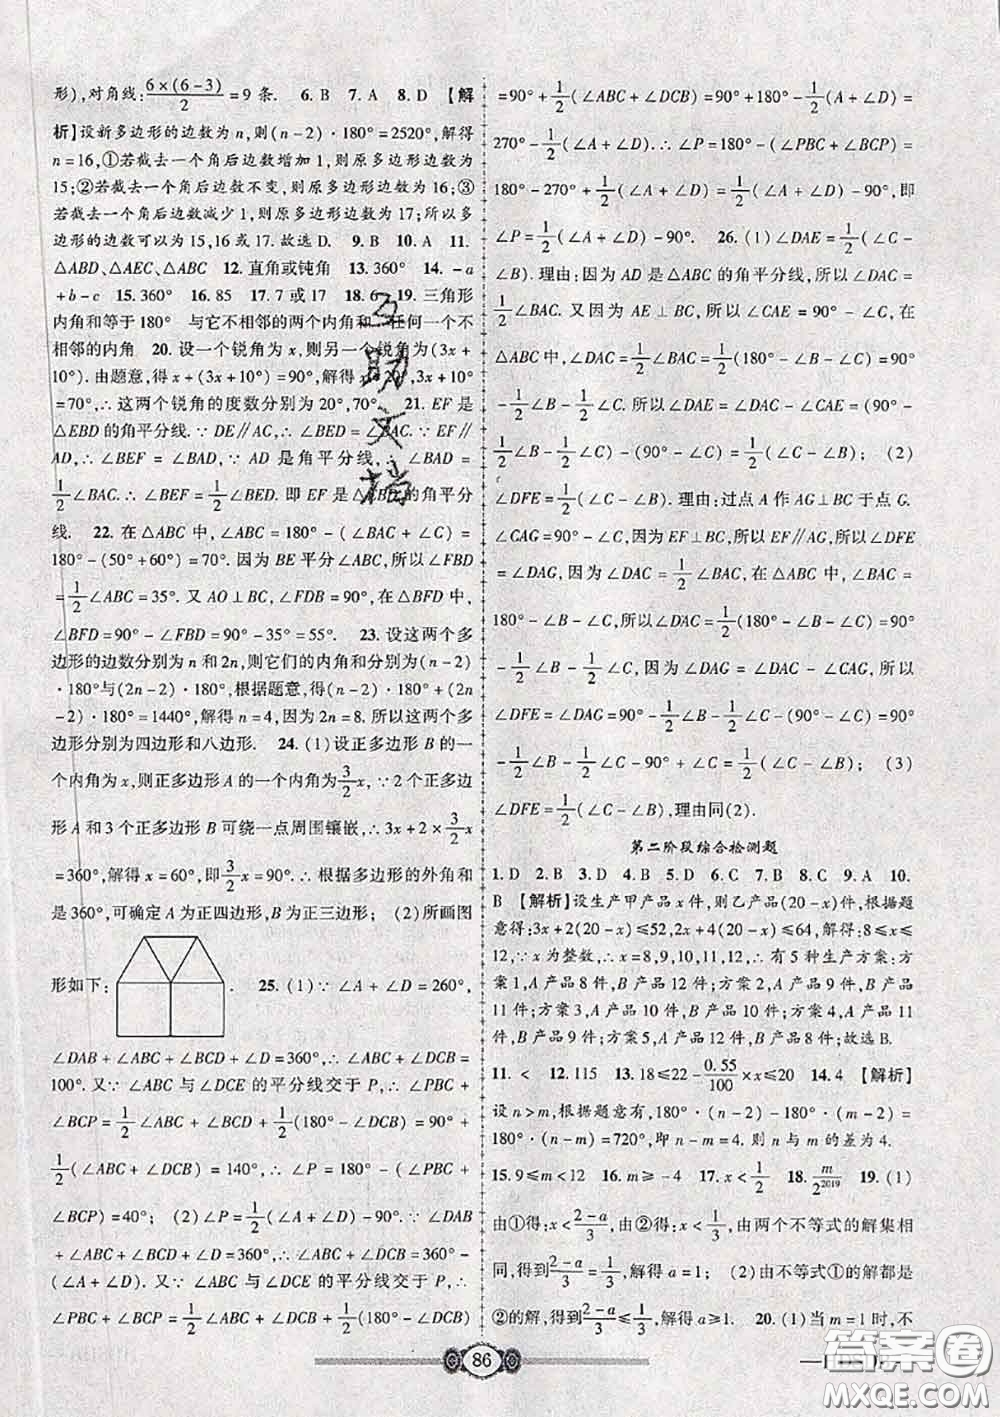 形),对角线:6×(6-3)/2=9 条. 6. B 7. A 8. D 【解
析】设新多边形的边数为 n,则(n-2)·180°=2520°,解得
n=16,①若截去一个角后边数增加 1,则原多边形边数为
15;②若截去一个角后边数不变,则原多边形边数为 16;③
若截去一个角后边数减少 1,则原多边形边数为 17;所以多
边形的边数可以为 15,16 或 17. 故选 D. 9. B 10. A 11.
△ABD、△AEC、△ABC 12. 直角或钝角 13. 360° 14. -a
+b-c 15. 360° 16. 85 17. 7 或 17 18. 6 19. 三角形
内角和等于 180° 与它不相邻的两个内角和 任何一个不
相邻的内角 20. 设一个锐角为 x,则另一个锐角为(3x+
10°). 由题意,得 x+(3x+10°)=90°,解得 x=20°,3x+10°
=70°,∴这两个锐角的度数分别为 20°,70°. 21. EF 是
△EBD 的角平分线. ∵DE∥AC,∴∠BED=∠BAC. ∵EF∥
AD,∴∠BEF=∠BAD,∵AD 是角平分线,∴∠BAD=
1/2∠BAC. ∴∠BEF=1/2∠BED. 即 EF 是△EBD 的角平分
线. 22. 在△ABC 中,∠ABC=180°-(∠BAC+∠C)=
180°-(50°+60°)=70°. 因为 BE 平分∠ABC,所以∠FBD
=1/2∠ABC=35°. 又 AO⊥BC,∠FDB=90°,在△BDF 中,
∠BFD=90°-∠FBD=90°-35°=55°. 23. 设这两个多
边形的边数分别为 n 和 2n,则它们的内角和分别为(n-2)
·180°与(2n-2)·180°,根据题意,得(n-2)·180°+(2n
-2)·180°=1440°,解得 n=4,因为 2n=8. 所以这两个多
边形分别为四边形和八边形. 24. (1)设正多边形 B 的一
个内角为 x,则正多边形 A 的一个内角为3/2x,∵2 个正多边
形 A 和 3 个正多边形 B 可绕一点周围镶嵌,∴3x+2×3/2x
=360°,解得 x=60°,即3/2x=90°,根据多边形的外角和
是 360°,可确定 A 为正四边形,B 为正三边形; (2)所画图
形如下: . 25. (1)∵∠A+∠D=260°,
∠DAB+∠ABC+∠BCD+∠D=360°,∴∠ABC+∠DCB=
100°. 又∵∠ABC 与∠DCE 的平分线交于 P,∴∠PBC+
∠BCP=1/2∠ABC+∠DCB+1/2(180°-∠DCB)=90°+
1/2(∠ABC+∠DCB)=140°,∴∠P=180°-(∠PBC+
∠BCP)=40°; (2)∠P=1/2(∠A+∠D)-90°. ∵∠DAB
+∠ABC+∠BCD+∠D=360°,∴∠ABC+∠DCB=360°-
(∠A+∠D). 又∵∠ABC 与∠DCE 的平分线交于 P,∴
∠PBC+∠BCP=1/2∠ABC+∠DCB+1/2(180°-∠DCB)
=90°+1/2(∠ABC+∠DCB)=90°+180°-1/2(∠A+∠D)=
270°-1/2(∠A+∠D). ∴∠P=180°-(∠PBC+∠BCP)=
180°-270°+1/2(∠A+∠D)=1/2(∠A+∠D)-90°,即
∠P=1/2(∠A+∠D)-90°. 26. (1)∠DAE=1/2(∠C-
∠B). 理由:因为 AD 是△ABC 的角平分线,所以∠DAC=
1/2∠BAC. 又因为 AE⊥BC,所以∠CAE=90°-∠C. 在
△ABC 中,∠DAC=1/2∠BAC=1/2(180°-∠B-∠C)=90°
-1/2∠B-1/2∠C. 所以∠DAE=∠DAC-∠CAE=(90°-
1/2∠B-1/2∠C)-(90°-∠C)=1/2(∠C-∠B); (2)
∠DFE=1/2(∠C-∠B). 理由:过点 A 作 AG⊥BC 于点 G.
∠CAG=90°-∠C,因为 EF⊥BC,所以 EF∥AG,所以∠DFE
=∠DAG,因为∠DAC=1/2∠BAC,在△ABC 中,∠BAC=
180°-∠B-∠C,所以∠DAC=1/2(180°-∠B-∠C)=90°
-1/2∠B-1/2∠C,因为∠DAG=∠DAC-∠CAG,所以
∠DFE=∠DAG=90°-1/2∠B-1/2∠C-(90°-∠C)=90°
-1/2∠B-1/2∠C-90°+∠C=1/2(∠C-∠B); (3)
∠DFE=1/2(∠C-∠B),理由同(2).
第二阶段综合检测题
1. D 2. B 3. D 4. B 5. D 6. C 7. B 8. C 9. A 10.
B 【解析】设生产甲产品 x 件,则乙产品(20-x)件,根据题
意得:3x+2(20-x)≤52,2x+4(20-x)≤64,解得:8≤x≤
12,∵x 为整数,∴x=8,9,10,11,12,∴有 5 种生产方案:方
案 1,A 产品 8 件,B 产品 12 件;方案 2,A 产品 9 件,B 产品
11 件;方案 3,A 产品 10 件,B 产品 10 件;方案 4,A 产品 11
件,B 产品 9 件;方案 5,A 产品 12 件,B 产品 8 件;故选 B.
11. < 12. 115 13. 18≤22-0.55/100×x≤20 14. 4 【解析】
设 n>m,根据题意有,180°·(n-2)-180°·(m-2)=
180°·(n-m)=720°,即 n-m=4. 则 n 与 m 的差为 4.
15. 9≤m<12 16. m≥-4 17. x<1/2 18. m/2^2019 19. (1)
由①得:x<(2-a)/3,由②得:x<1/3,由两个不等式的解集相
同,得到(2-a)/3=1/3,解得 a=1; (2)由不等式①的解都是
②的解,得到(2-a)/3≤1/3,解得 a≥1. 20. (1)当 m=1 时,不
86
互助文档
答案圈
MXQE.COM